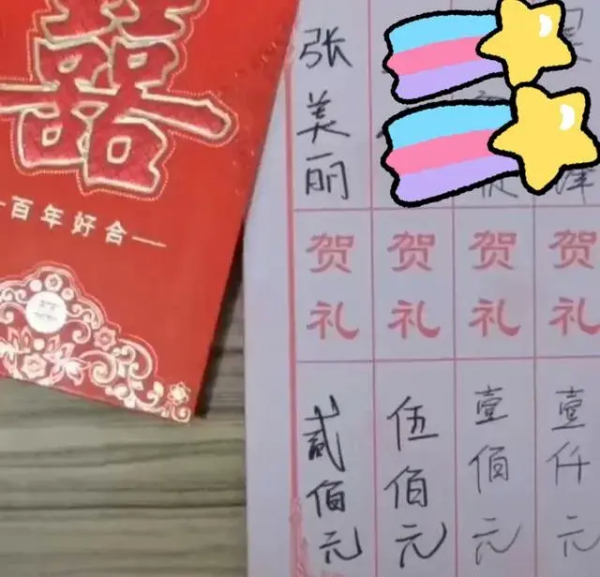 囍
百年好合
张美丽
贺礼
贰佰元
贺礼
伍佰元
贺礼
壹佰元
贺礼
壹仟元